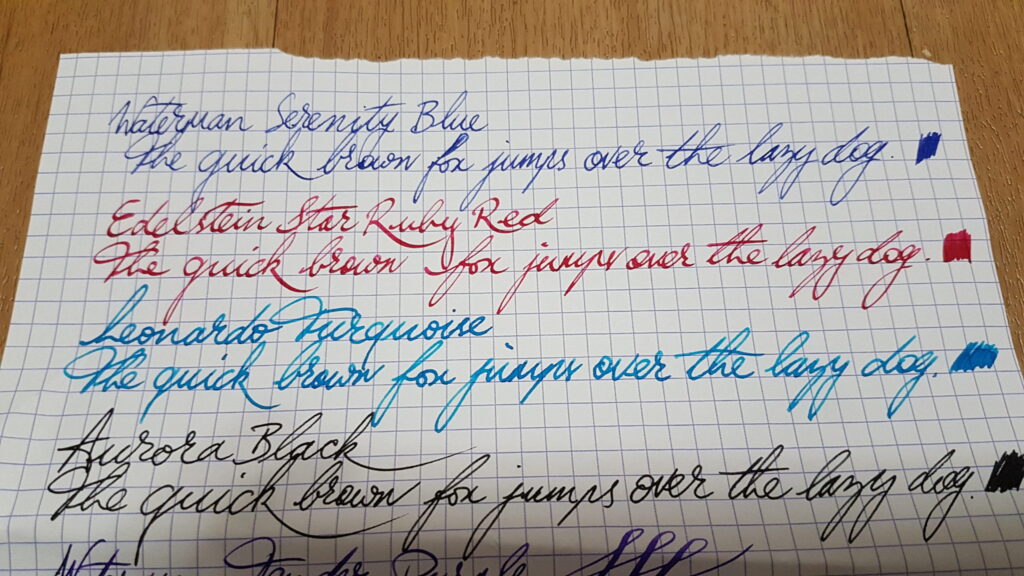 Waterman Serenity Blue
The quick brown fox jumps over the lazy dog.
Edelstein Star Ruby Red
The quick brown fox jumps over the lazy dog.
Leonardo Turquoise
The quick brown fox jumps over the lazy dog.
Aurora Black
The quick brown fox jumps over the lazy dog.
Purple